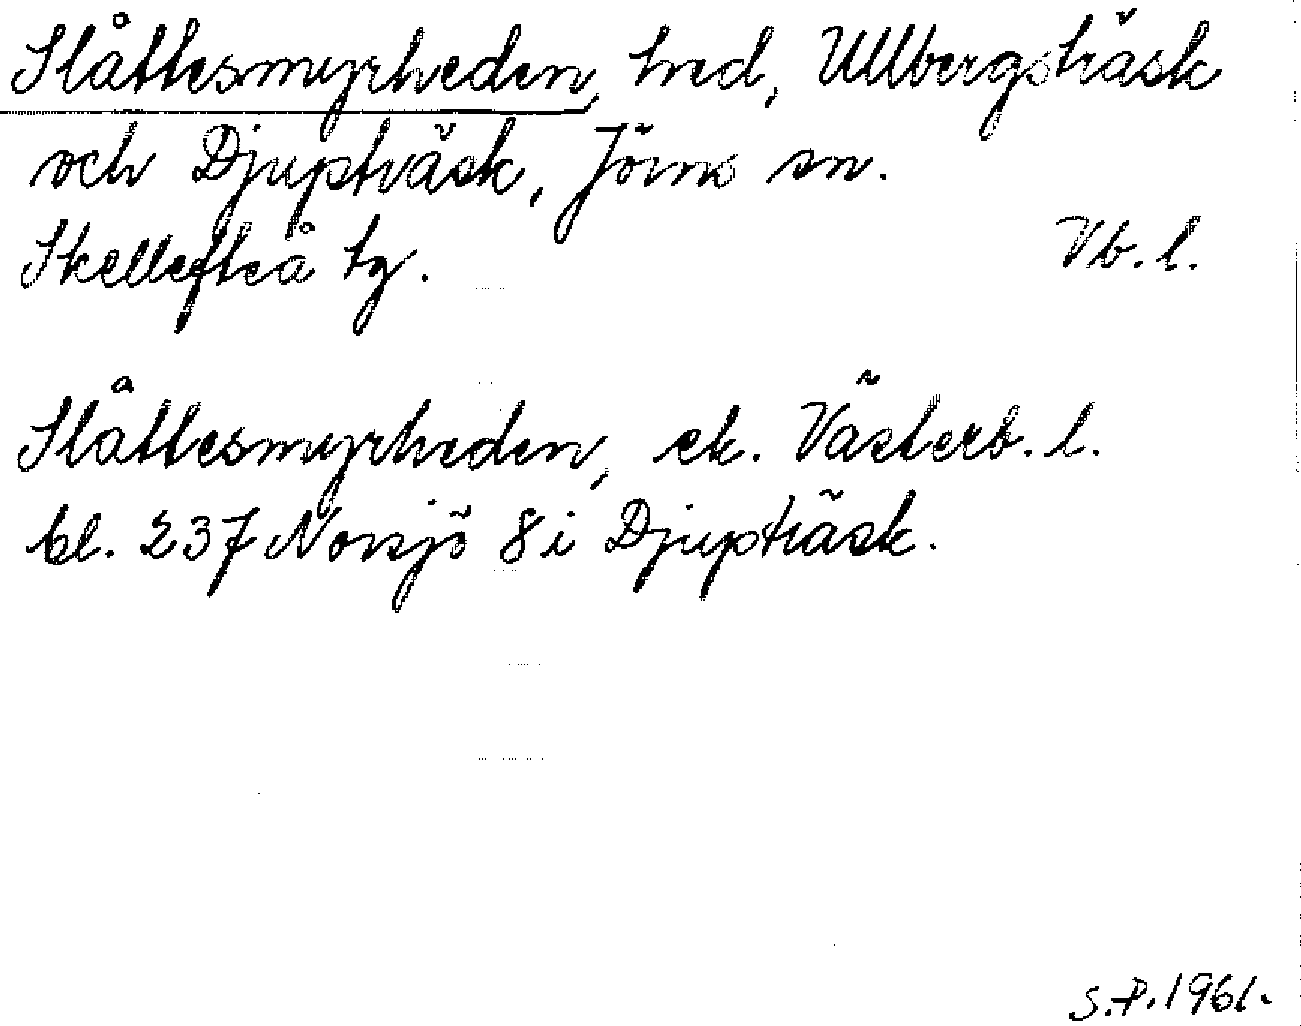 Slåttesmyrheden, hed, Ullbergsträsk
och Djupträsk, Jörns sn.
Skellefteå tg. Vb. l.
Slåttesmyrheden, ek. Västerb. l.
bl. 237 Norsjö 8 i Djupträsk.
S.P. 1961.